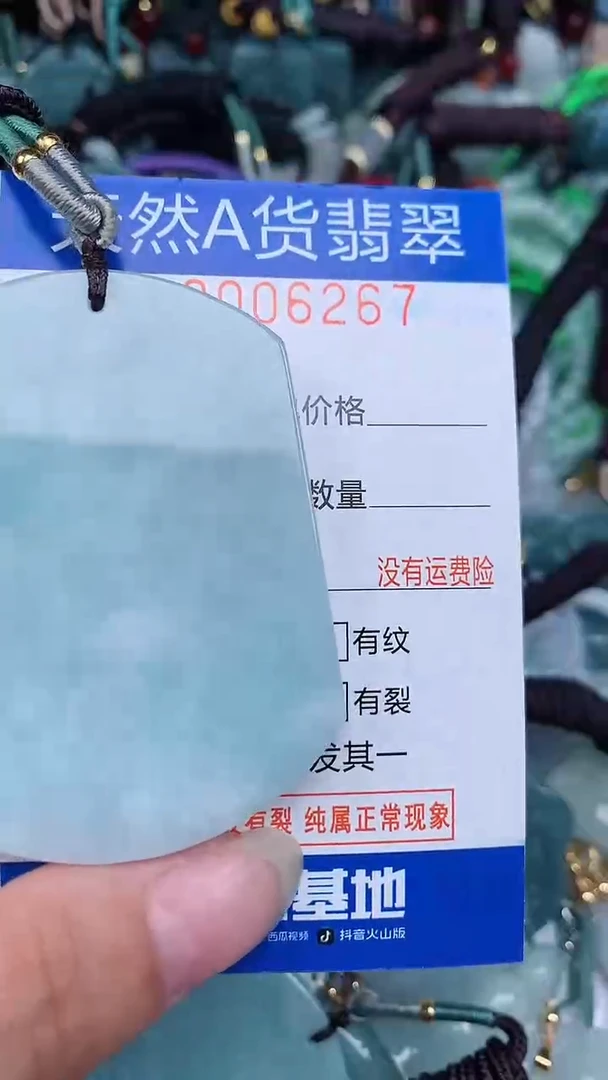 天然A货翡翠
006267
价格
数量
没有运费险
有纹
有裂
发其一
有裂 纯属正常现象
基地
西瓜视频 抖音火山版